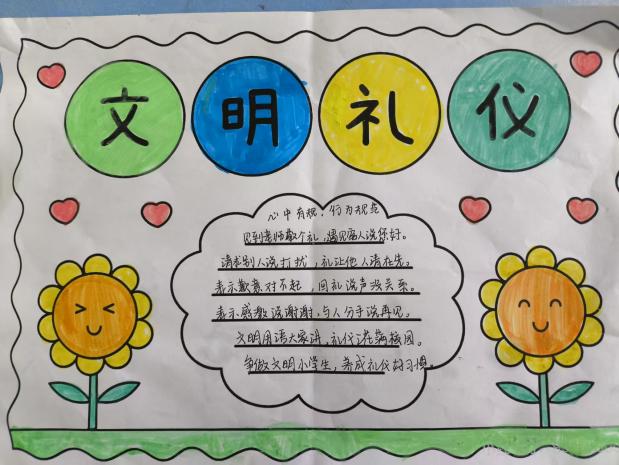 文明礼仪
心中有规,行为规范
见到老师敬个礼,遇见客人说您好。
请求别人说打扰,礼让他人请在先。
表示歉意对不起,回礼说声没关系。
表示感激说谢谢,与人分手说再见。
文明用语大家讲,礼仪之花满校园。
争做文明小学生,养成礼仪好习惯。